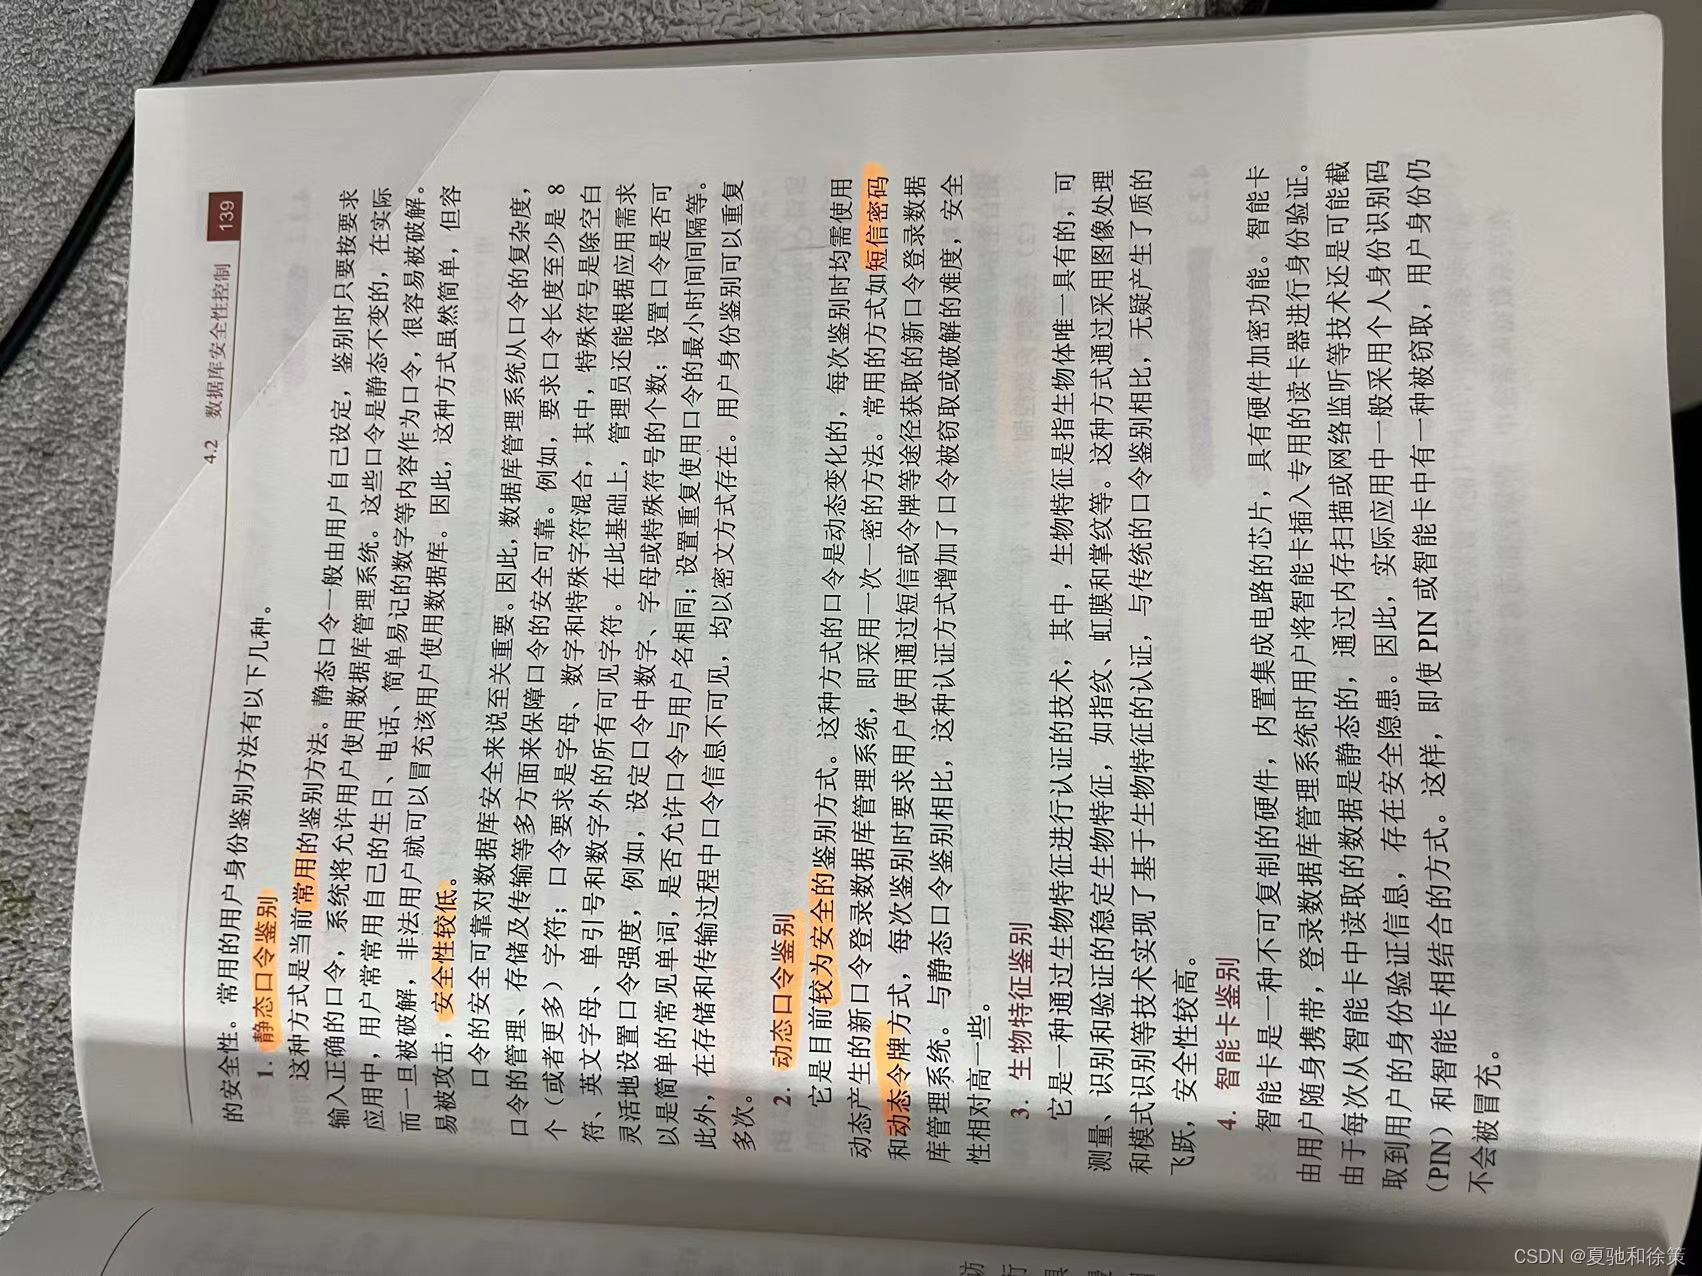 4.2 数据库安全性控制 139
的安全性。常用的用户身份鉴别方法有以下几种。
1. 静态口令鉴别
这种方式是当前常用的鉴别方法。静态口令一般由用户自己设定，鉴别时只要按要求
输入正确的口令，系统将允许用户使用数据库管理系统。这些口令是静态不变的，在实际
应用中，用户常常用自己的生日、电话、简单易记的数字等内容作为口令，很容易被破解。
而一旦被破解，非法用户就可以冒充该用户使用数据库。因此，这种方式虽然简单，但容
易被攻击，安全性较低。
口令的安全可靠对数据库安全来说至关重要。因此，数据库管理系统从口令的复杂度，
口令的管理、存储及传输等多方面来保障口令的安全可靠。例如，要求口令长度至少是 8
个（或者更多）字符；口令要求是字母、数字和特殊字符混合，其中，特殊符号是除空白
符、英文字母、单引号和数字外的所有可见字符。在此基础上，管理员还能根据应用需求
灵活地设置口令强度，例如，设定口令中数字、字母或特殊符号的个数；设置口令是否可
以是简单的常见单词，是否允许口令与用户名相同；设置重复使用口令的最小时间间隔等。
此外，在存储和传输过程中口令信息不可见，均以密文方式存在。用户身份鉴别可以重复
多次。
2. 动态口令鉴别
它是目前较为安全的鉴别方式。这种方式的口令是动态变化的，每次鉴别时均需使用
动态产生的新口令登录数据库管理系统，即采用一次一密的方法。常用的方式如短信密码
和动态令牌方式，每次鉴别时要求用户使用通过短信或令牌等途径获取的新口令登录数据
库管理系统。与静态口令鉴别相比，这种认证方式增加了口令被窃取或破解的难度，安全
性相对高一些。
3. 生物特征鉴别
它是一种通过生物特征进行认证的技术，其中，生物特征是指生物体唯一具有的，可
测量、识别和验证的稳定生物特征，如指纹、虹膜和掌纹等。这种方式通过采用图像处理
和模式识别等技术实现了基于生物特征的认证，与传统的口令鉴别相比，无疑产生了质的
飞跃，安全性较高。
4. 智能卡鉴别
智能卡是一种不可复制的硬件，内置集成电路的芯片，具有硬件加密功能。智能卡
由用户随身携带，登录数据库管理系统时用户将智能卡插入专用的读卡器进行身份验证。
由于每次从智能卡中读取的数据是静态的，通过内存扫描或网络监听等技术还是可能截
取到用户的身份验证信息，存在安全隐患。因此，实际应用中一般采用个人身份识别码
（PIN）和智能卡相结合的方式。这样，即使 PIN 或智能卡中有一种被窃取，用户身份仍
不会被冒充。
CSDN @夏驰和徐策